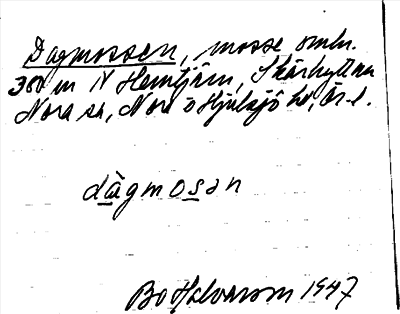 Dagmossen, mosse omkr.
380 m N Hemtjärn, Skärhyttan
Nora sn, Nora o Hjulsjö hd, Ör. l.
dàgmosan
Bo Halvarson 1947